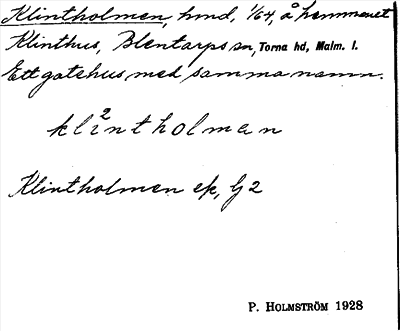 Klintholmen, hmd, 1/64, å hemmanet
Klinthus, Blentarps sn, Torna hd, Malm. l.
Ett gatehus med samma namn.
kli²ntholman
Klintholmen ek, Bj 2
P. HOLMSTRÖM 1928